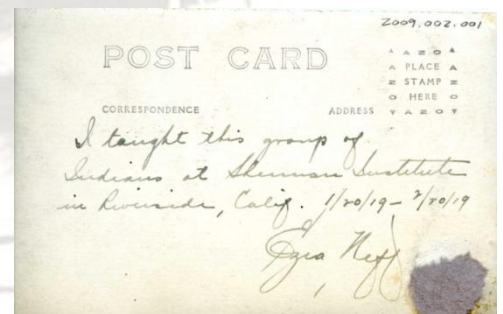 2009.002.001
POST CARD
AZO
PLACE
STAMP
HERE
AZO
CORRESPONDENCE ADDRESS
I taught this group of
Indians at Sherman Institute
in Riverside, Calif. 1/20/19 - 2/20/19
Ezra Neff